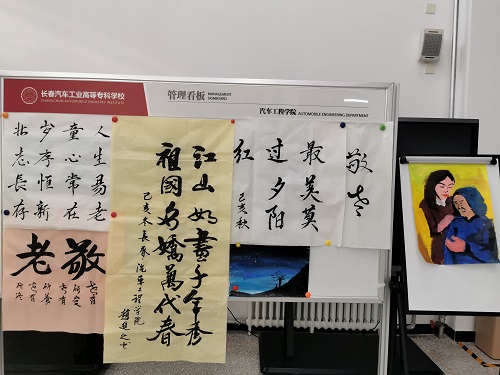 长春汽车工业高等专科学校
CHANGCHUN AUTOMOBILE INDUSTRY INSTITUTE
管理看板
MANAGEMENT
SIGNBOARD
汽车工程学院 AUTOMOBILE ENGINEERING DEPARTMENT
人生易老
童心常在
岁序恒新
壮志長存
敬老
江山如畫千年秀
祖國多嬌萬代春
己亥冬長春汽車工程學院
敬老
最美莫
过夕阳
红
己亥秋